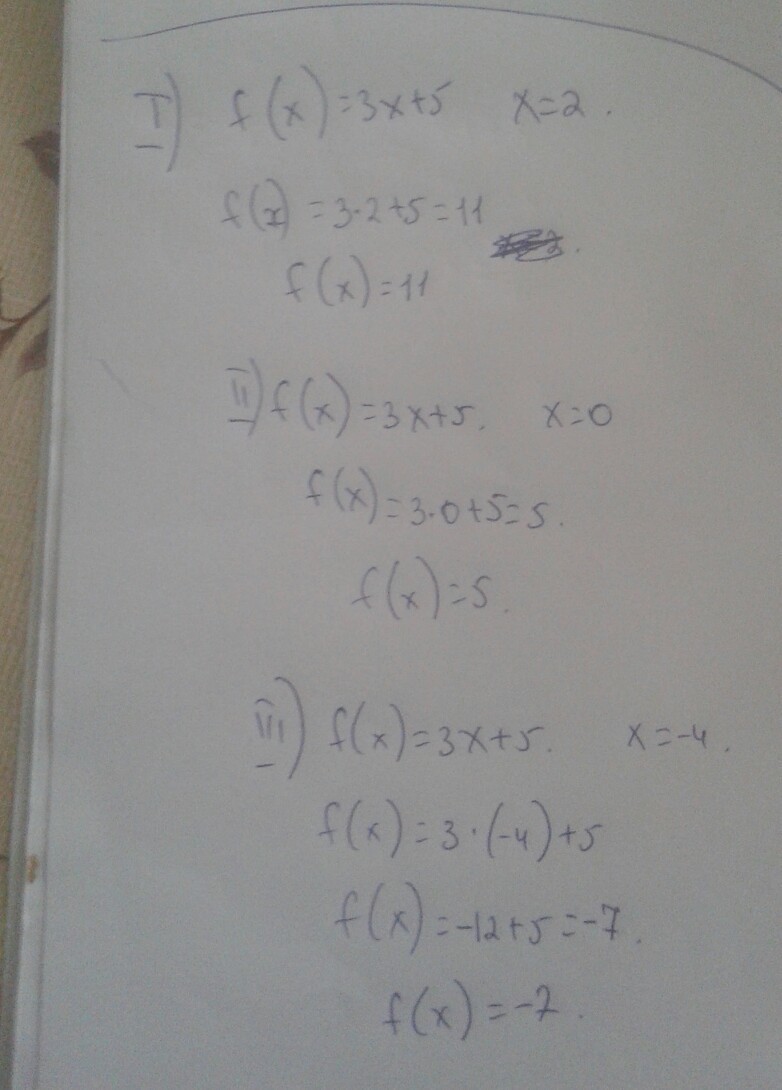 I) f(x)=3x+5 x=2.
f(x)=3·2+5=11
f(x)=11
II) f(x)=3x+5. x=0
f(x)=3·0+5=5.
f(x)=5.
III) f(x)=3x+5. x=-4.
f(x)=3·(-4)+5
f(x)=-12+5=-7.
f(x)=-7.